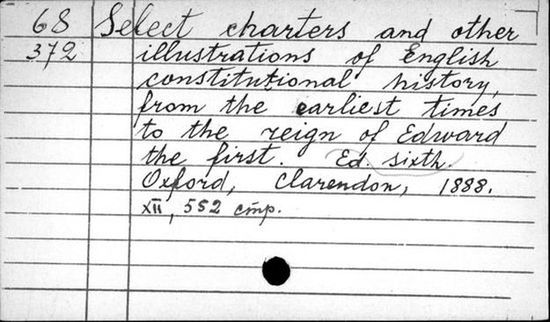 68 Select charters and other
372 illustrations of English
constitutional history,
from the earliest times
to the reign of Edward
the first. Ed. sixth.
Oxford, Clarendon, 1888.
XII, 552 стр.